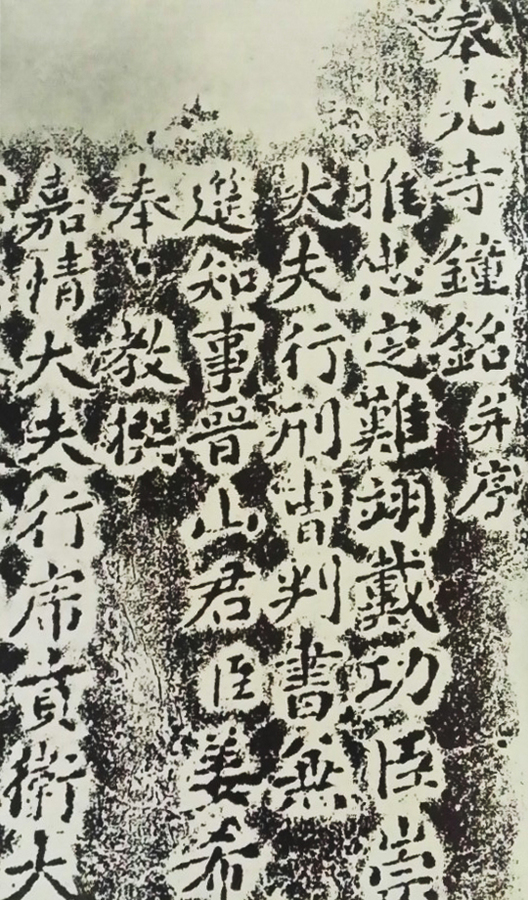 奉先寺鐘銘并序
推忠定難翊戴功臣崇
大夫行刑曹判書兼
筵知事晉山君臣姜希
奉 教撰
嘉靖大夫行虎賁衛大